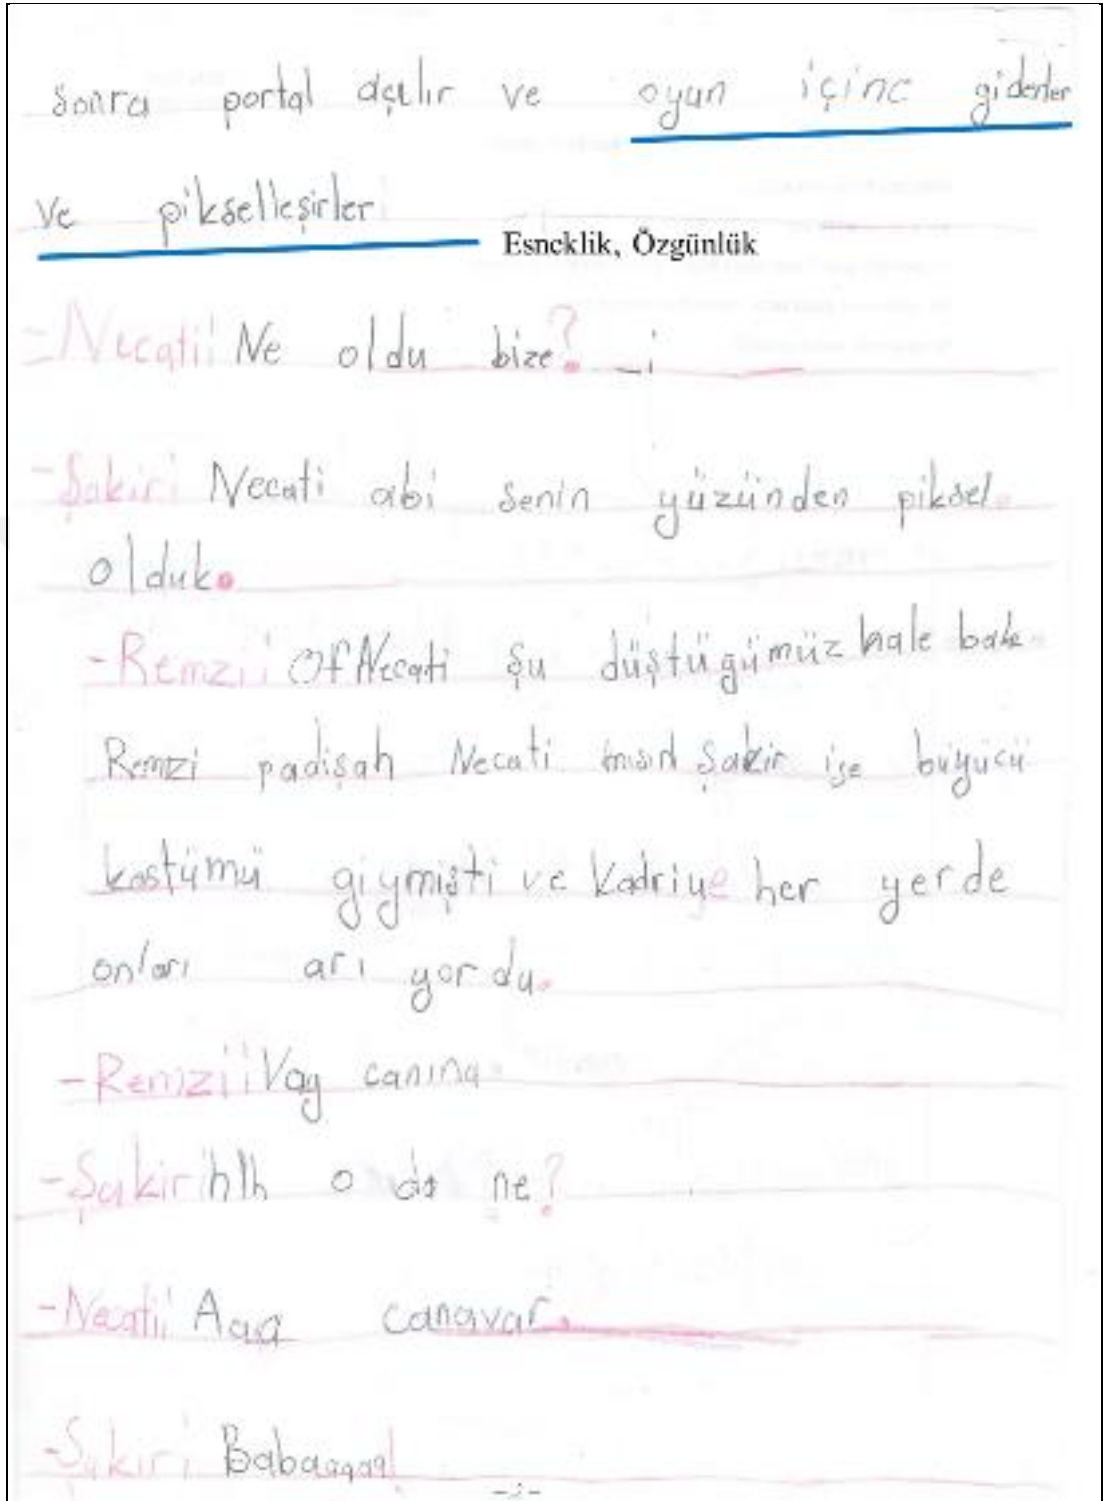 sonra portal açılır ve oyun içine giderler
ve pikselleşirler
Esneklik, Özgünlük
-Necati: Ne oldu bize?
-Şakir: Necati abi senin yüzünden piksel
olduk.
-Remzi: Of Necati şu düştüğümüz hale bak
Remzi padişah Necati Şakir ise büyücü
kostümü giymişti ve Kadriye her yerde
onları arı yordu.
-Remzi: Vay canına
-Şakir: hıh o da ne?
-Necati: Aaa canavar.
-Şakir: Babaaaaa!